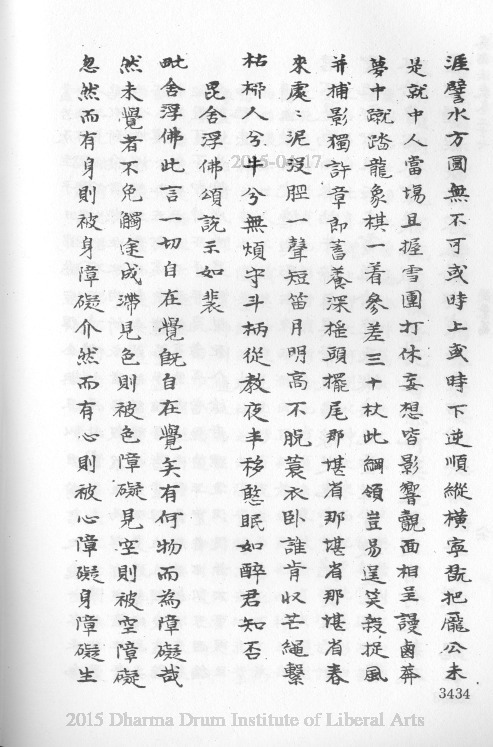 涯譬水方圓無不可或時上或時下逆順縱橫寧翫把龐公未
是就中人當場且握雪團打休妄想皆影響覿面相呈謾鹵莽
夢中蹴踏龍象棋一着參差三十杖此綱領豈易逞笑殺捉風
并捕影獨許章郎蓄養深搖頭擺尾那堪省那堪省那堪省春
來處泥沒脛一聲短笛月明高不脫蓑衣卧誰肯收芒繩繫
枯樁人兮牛兮無煩守斗柄從教夜半移憨眠如醉君知否
毘舍浮佛頌說示如裴
毗舍浮佛此言一切自在覺旣自在覺矣有何物而為障礙哉
然未覺者不免觸途成滯見色則被色障礙見空則被空障礙
忽然而有身則被身障礙介然而有心則被心障礙身障礙生
3434
2015-04-17
2015 Dharma Drum Institute of Liberal Arts